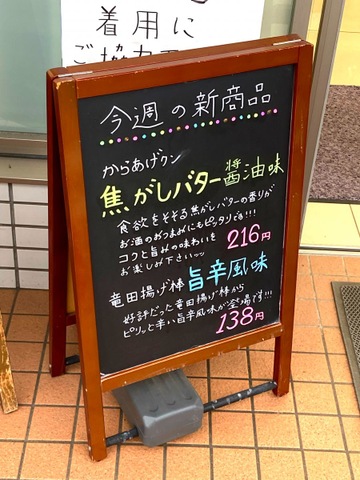 着用に
ご協力
今週の新商品
からあげクン
焦がしバター醤油味
食欲をそそる焦がしバターの香りが
お酒のおつまみにもピッタリです!!!
コクと旨みの味わいを
お楽しみ下さい
216円
竜田揚げ棒 旨辛風味
好評だった竜田揚げ棒から
ピリッと辛い旨辛風味が登場です!!!
138円